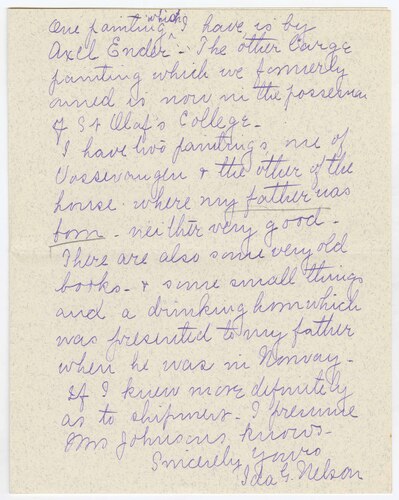 One painting which I have is by
Axel Ender - The other large
painting which we formerly
owned is now in the possession
of St Olaf's College -
I have two paintings, one of
Vossevangen & the other of the
house where my father was
born - neither very good -
There are also some very old
books - & some small things
and a drinking horn which
was presented to my father
when he was in Norway -
If I knew more definitely
as to shipment - I presume
Mrs Johnsons knows -
Sincerely yours
Ida G. Nelson